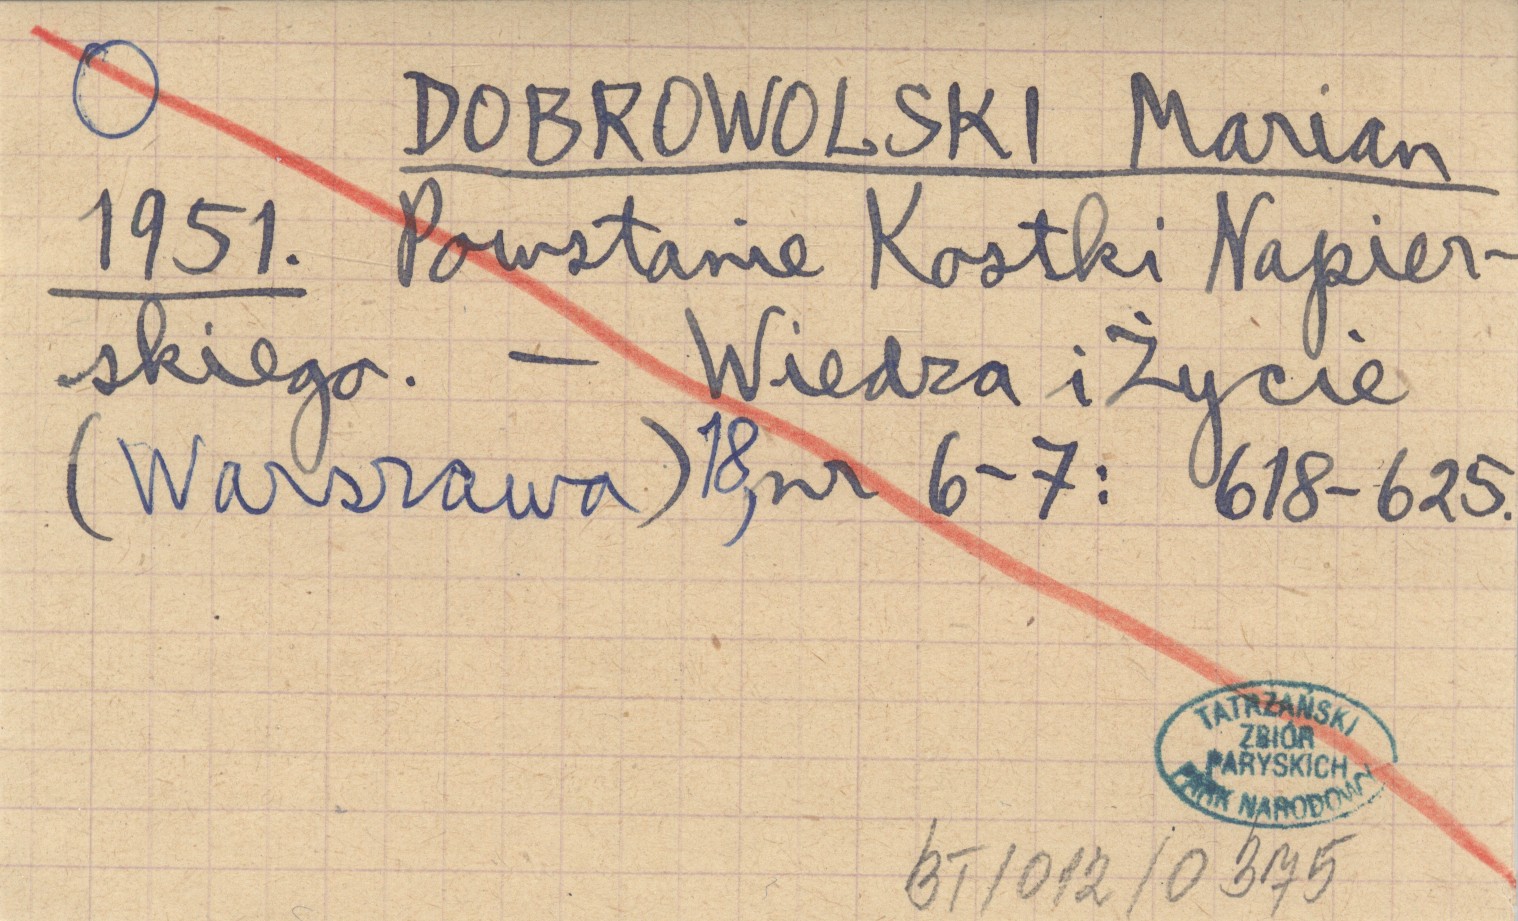 DOBROWOLSKI Marian
1951. Powstanie Kostki Napier-
skiego. — Wiedza i Życie
(Warszawa) 18, nr 6-7: 618-625.
TATRZAŃSKI
ZBIÓR
PARYSKICH
PARK NARODOWY
BT/012/0375